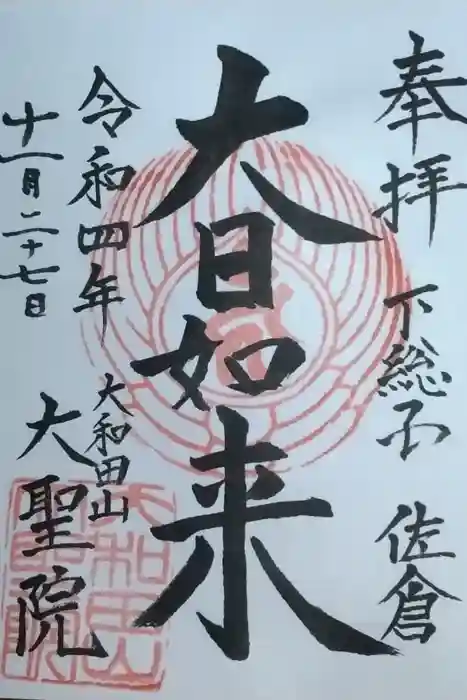 奉拝
下総国
佐倉
大日如来
令和四年
十一月二十七日
大和田山
大聖院